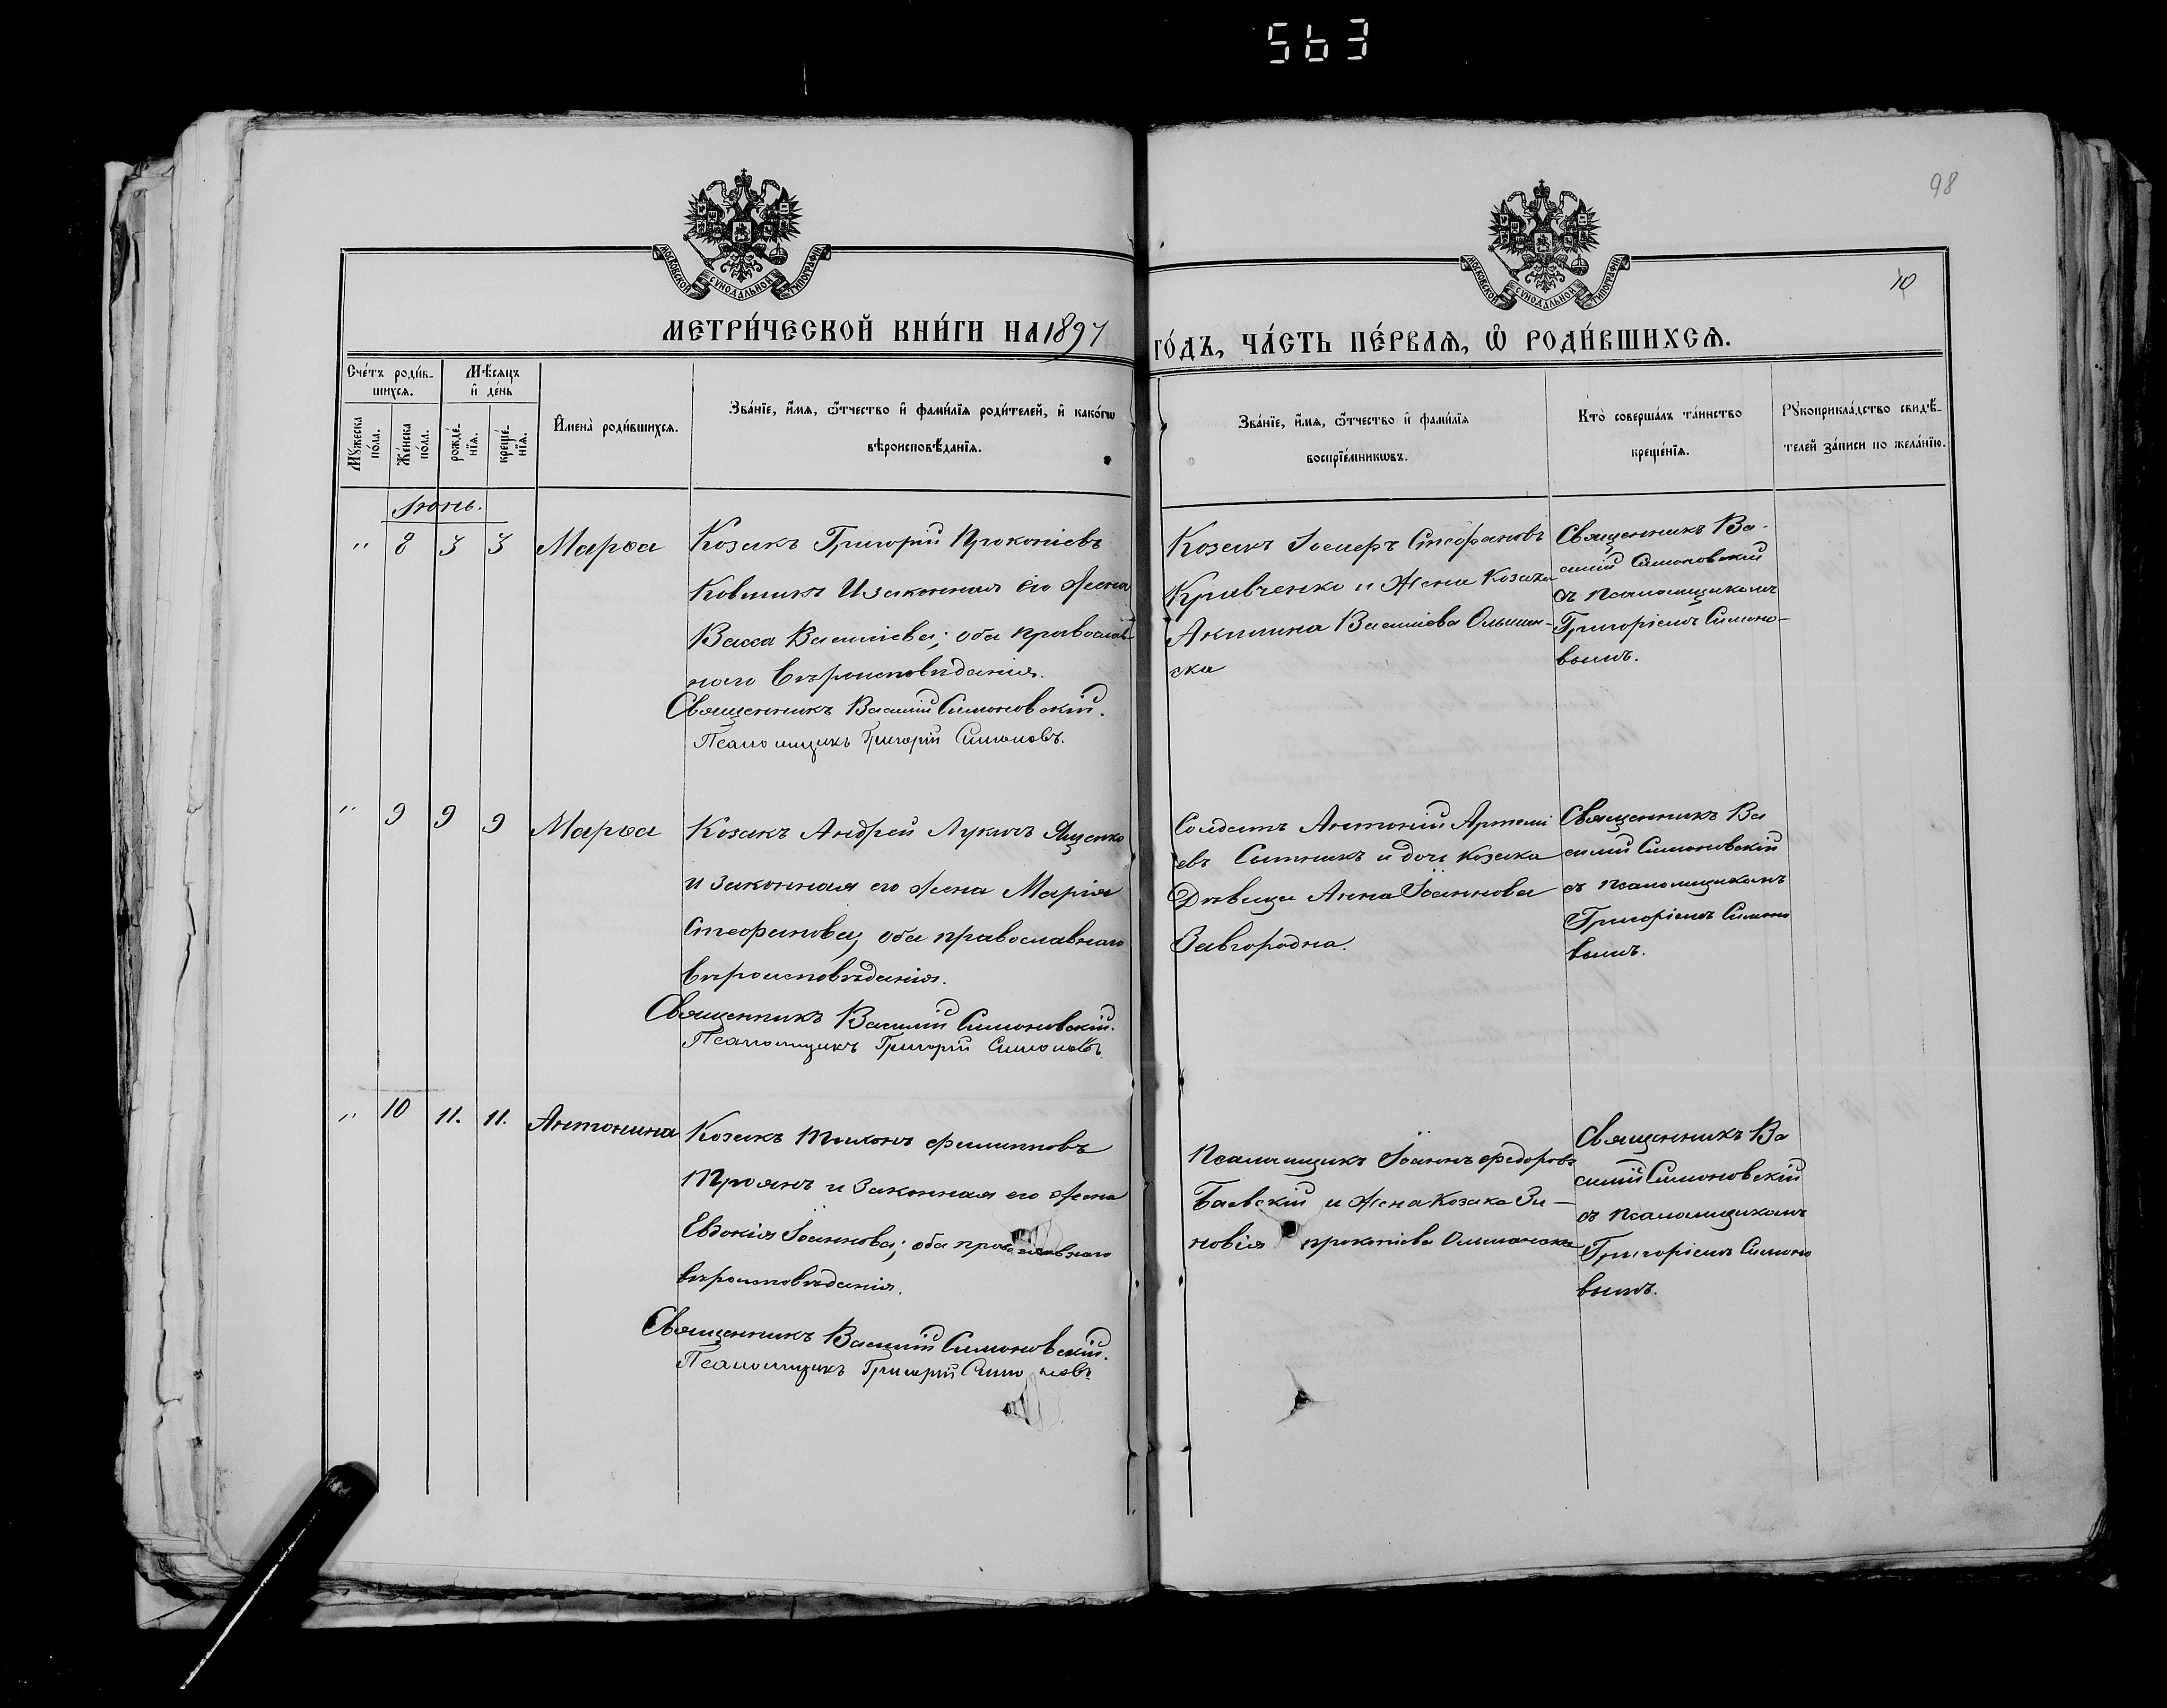 563
98
МОСКОВСКОЙ СУНОДАЛЬНОЙ ТИПОГРАФІИ
МОСКОВСКОЙ СУНОДАЛЬНОЙ ТИПОГРАФІИ
10
МЕТРИ́ЧЕСКОЙ КНИ́ГИ НА 1897
ГО́ДЪ, ЧА́СТЬ ПЕ́РВАѦ, Ѡ҆ РОДИ́ВШИХСѦ.
Сче́тъ роди́в-
шихсѧ.
Мѣ́сѧцъ
и҆ де́нь
Мꙋ́жеска
по́ла.
Же́нска
по́ла.
рожде́-
нїѧ.
креще́-
нїѧ.
И҆мена̀ роди́вшихсѧ.
Зва́нїе, и҆́мѧ, ѻ҆́тчество и҆ фами́лїѧ роди́телей, и҆ како́гѡ
вѣроисповѣ́данїѧ.
Зва́нїе, и҆́мѧ, ѻ҆́тчество и҆ фами́лїѧ
воспрїе́мникѡвъ.
Кто̀ соверша́лъ та́инство
креще́нїѧ.
Рꙋкоприкла́дство свидѣ́-
телей за́писи по жела́нїю.
Іюнь.
" 8 3 3 Марѳа
Козакъ Григорій Прокопіевъ
Ковшикъ И законная его жена
Васса Василіева; оба православ-
наго вѣроисповѣданія.
Священникъ Василій Симоновскій.
Псаломщикъ Григорій Симоновъ.
Козакъ Іосифъ Стефановъ
Кравченко и жена Козака
Акилина Василіева Ольшан-
ска
Священникъ Ва-
силій Симоновскій
съ псаломщикомъ
Григоріемъ Симоно-
вымъ.
" 9 9 9 Марѳа
Козакъ Андрей Лукичъ Ященко
и законная его жена Марія
Стефанова; оба православнаго
вѣроисповѣданія.
Священникъ Василій Симоновскій.
Псаломщикъ Григорій Симоновъ.
Солдатъ Антоній Артемі
евъ Сытникъ и дочь козака
Дѣвица Анна Іоаннова
Завгородна.
Священникъ Ва
силій Симоновскій
съ псаломщикомъ
Григоріемъ Симоно
вымъ.
" 10 11. 11. Антонина
Козакъ Тихонъ Филипповъ
Троянъ и законная его жена
Евдокія Іоаннова; оба православнаго
вѣроисповѣданія.
Священникъ Василій Симоновскій.
Псаломщикъ Григорій Симоновъ.
Псаломщикъ Іоаннъ Федоровъ
Баевскій и жена Козака Зи-
новія прокопіева Ольшанска
Священникъ Ва
силій Симоновскій
съ псаломщикомъ
Григоріемъ Симоно
вымъ.